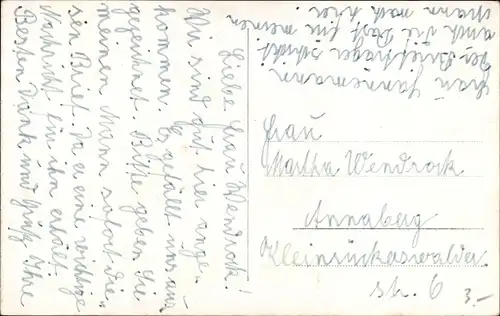 Liebe Frau Wendrock!
Wir sind gut hier ange-
kommen. Es gefällt uns aus
gezeichnet. Bitte geben Sie
meinen Mann sofort die-
sen Brief. Da er eine wichtige
Nachricht ein ihn erhält.
Besten Dank und Grüße Ihre
Frau
Der Briefträger schickt
auch die Post für meinen
Mann nach hier
Frau
Martha Wendrock
Annaberg
Kleinrückerswalder
str. 6
3.-